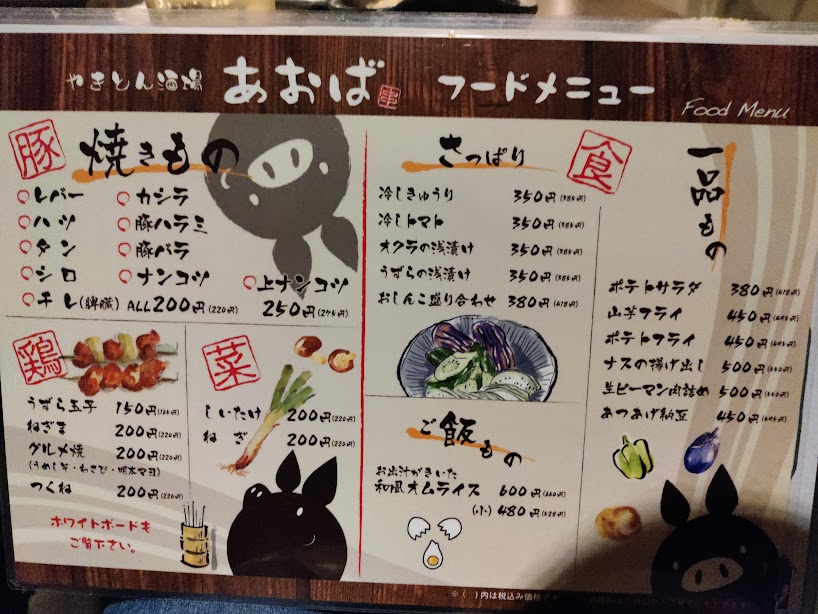 やきとん酒場 あおば 串 フードメニュー
Food Menu
豚 焼きもの
レバー カシラ
ハツ 豚ハラミ
タン 豚バラ
シロ ナンコツ 上ナンコツ
チレ(脾臓) ALL200円(220円) 250円(275円)
鶏
うずら玉子 150円(165円)
ねぎま 200円(220円)
グルメ焼 200円(220円)
(うめしそ・わさび・明太マヨ)
つくね 200円(220円)
ホワイトボードも
ご覧下さい。
菜
しいたけ 200円(220円)
ねぎ 200円(220円)
さっぱり
冷しきゅうり 350円(385円)
冷しトマト 350円(385円)
オクラの浅漬け 350円(385円)
うずらの浅漬け 350円(385円)
おしんこ盛り合わせ 380円(418円)
ご飯もの
お出汁がきいた
和風オムライス 600円(660円)
(小) 480円(528円)
食
一品もの
ポテトサラダ 380円(418円)
山芋フライ 450円(495円)
ポテトフライ 450円(495円)
ナスの揚げ出し 500円(550円)
生ピーマン肉詰め 500円(550円)
あつあげ納豆 450円(495円)
※( )内は税込み価格です